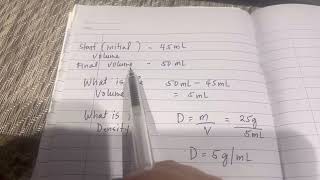 Start (initial) - 45 mL
volume
Final volume - 50 mL
What is 50 mL - 45 mL
Volume = 5 mL
What is D = m/V = 25g/5mL
Density
D = 5 g/mL